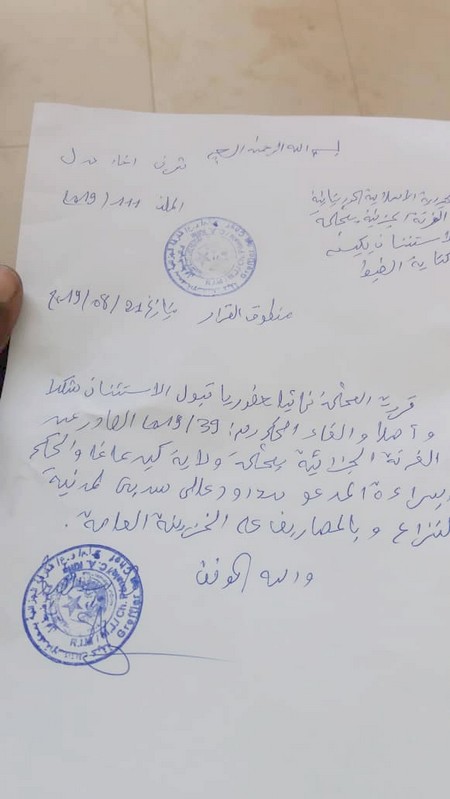 بسم الله الرحمن الرحيم
شرف إخاء عدل
الجمهورية الإسلامية الموريتانية
الغرفة الجزائية بمحكمة
الاستئناف بكيفه
كتابة الضبط
الملف 111/2019
منطوق القرار بتاريخ 21/08/2019
قررت المحكمة نهائيا حضوريا قبول الاستئناف شكلا
وأصلا وإلغاء الحكم رقم: 39/2019 الصادر عن
الغرفة الجزائية بمحكمة ولاية كيديماغا والحكم
ببراءة المدعو
النزاع وبالمصاريف على الخزينة العامة.
والله الموفق